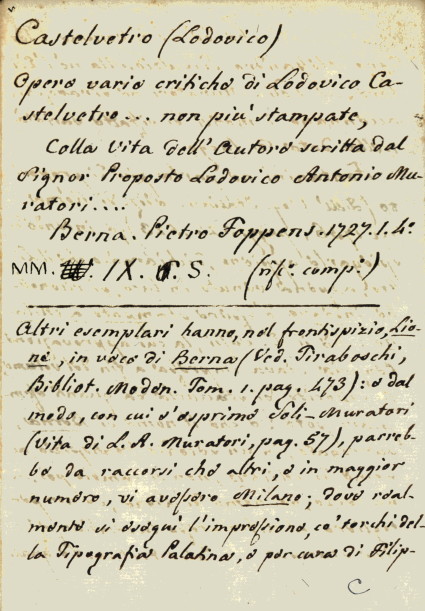 Castelvetro (Lodovico)
Opere varie critiche di Lodovico Ca-
stelvetro... non più stampate,
Colla Vita dell'Autore scritta dal
Signor Proposto Lodovico Antonio Mu-
ratori....
Berna. Pietro Foppens. 1727. 1. 4.º
MM. IX. S. (rist.º comp.º)
Altri esemplari hanno, nel frontispizio, Lio-
ne, in voce di Berna (Ved. Tiraboschi,
Bibliot. Moden. Tom. 1. pag. 473): e dal
modo, con cui s'esprime Soli-Muratori
(Vita di L. A. Muratori, pag. 57), parreb-
be da raccorsi che altri, e in maggior
numero, vi avessero Milano; dove real-
mente si eseguì l'impressione, co' torchi del-
la Tipografia Palatina, e per cura di Filip-
C